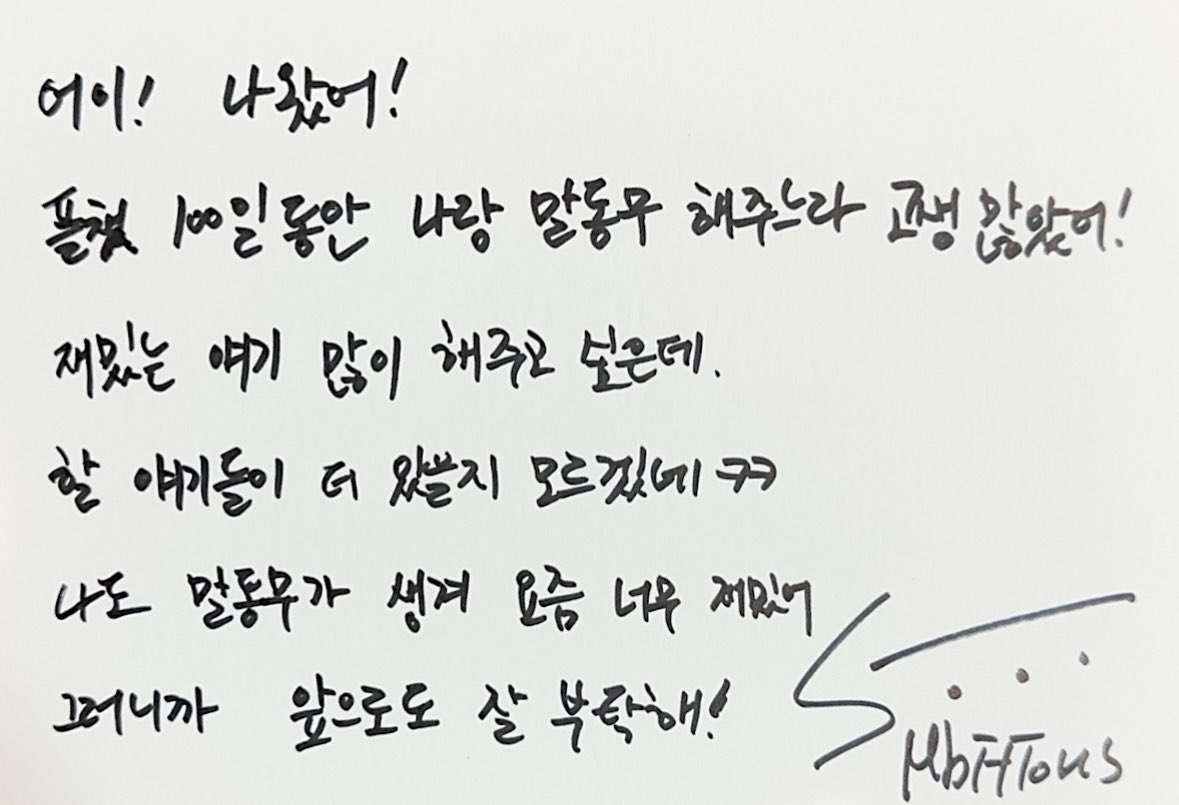 어이! 나왔어!
플챗 100일동안 나랑 말동무 해주느라 고생 많았어!
재밌는 얘기 많이 해주고 싶은데.
할 얘기들이 더 있을지 모르겠네 ㅋㅋ
나도 말동무가 생겨 요즘 너무 재밌어
그러니까 앞으로도 잘 부탁해!